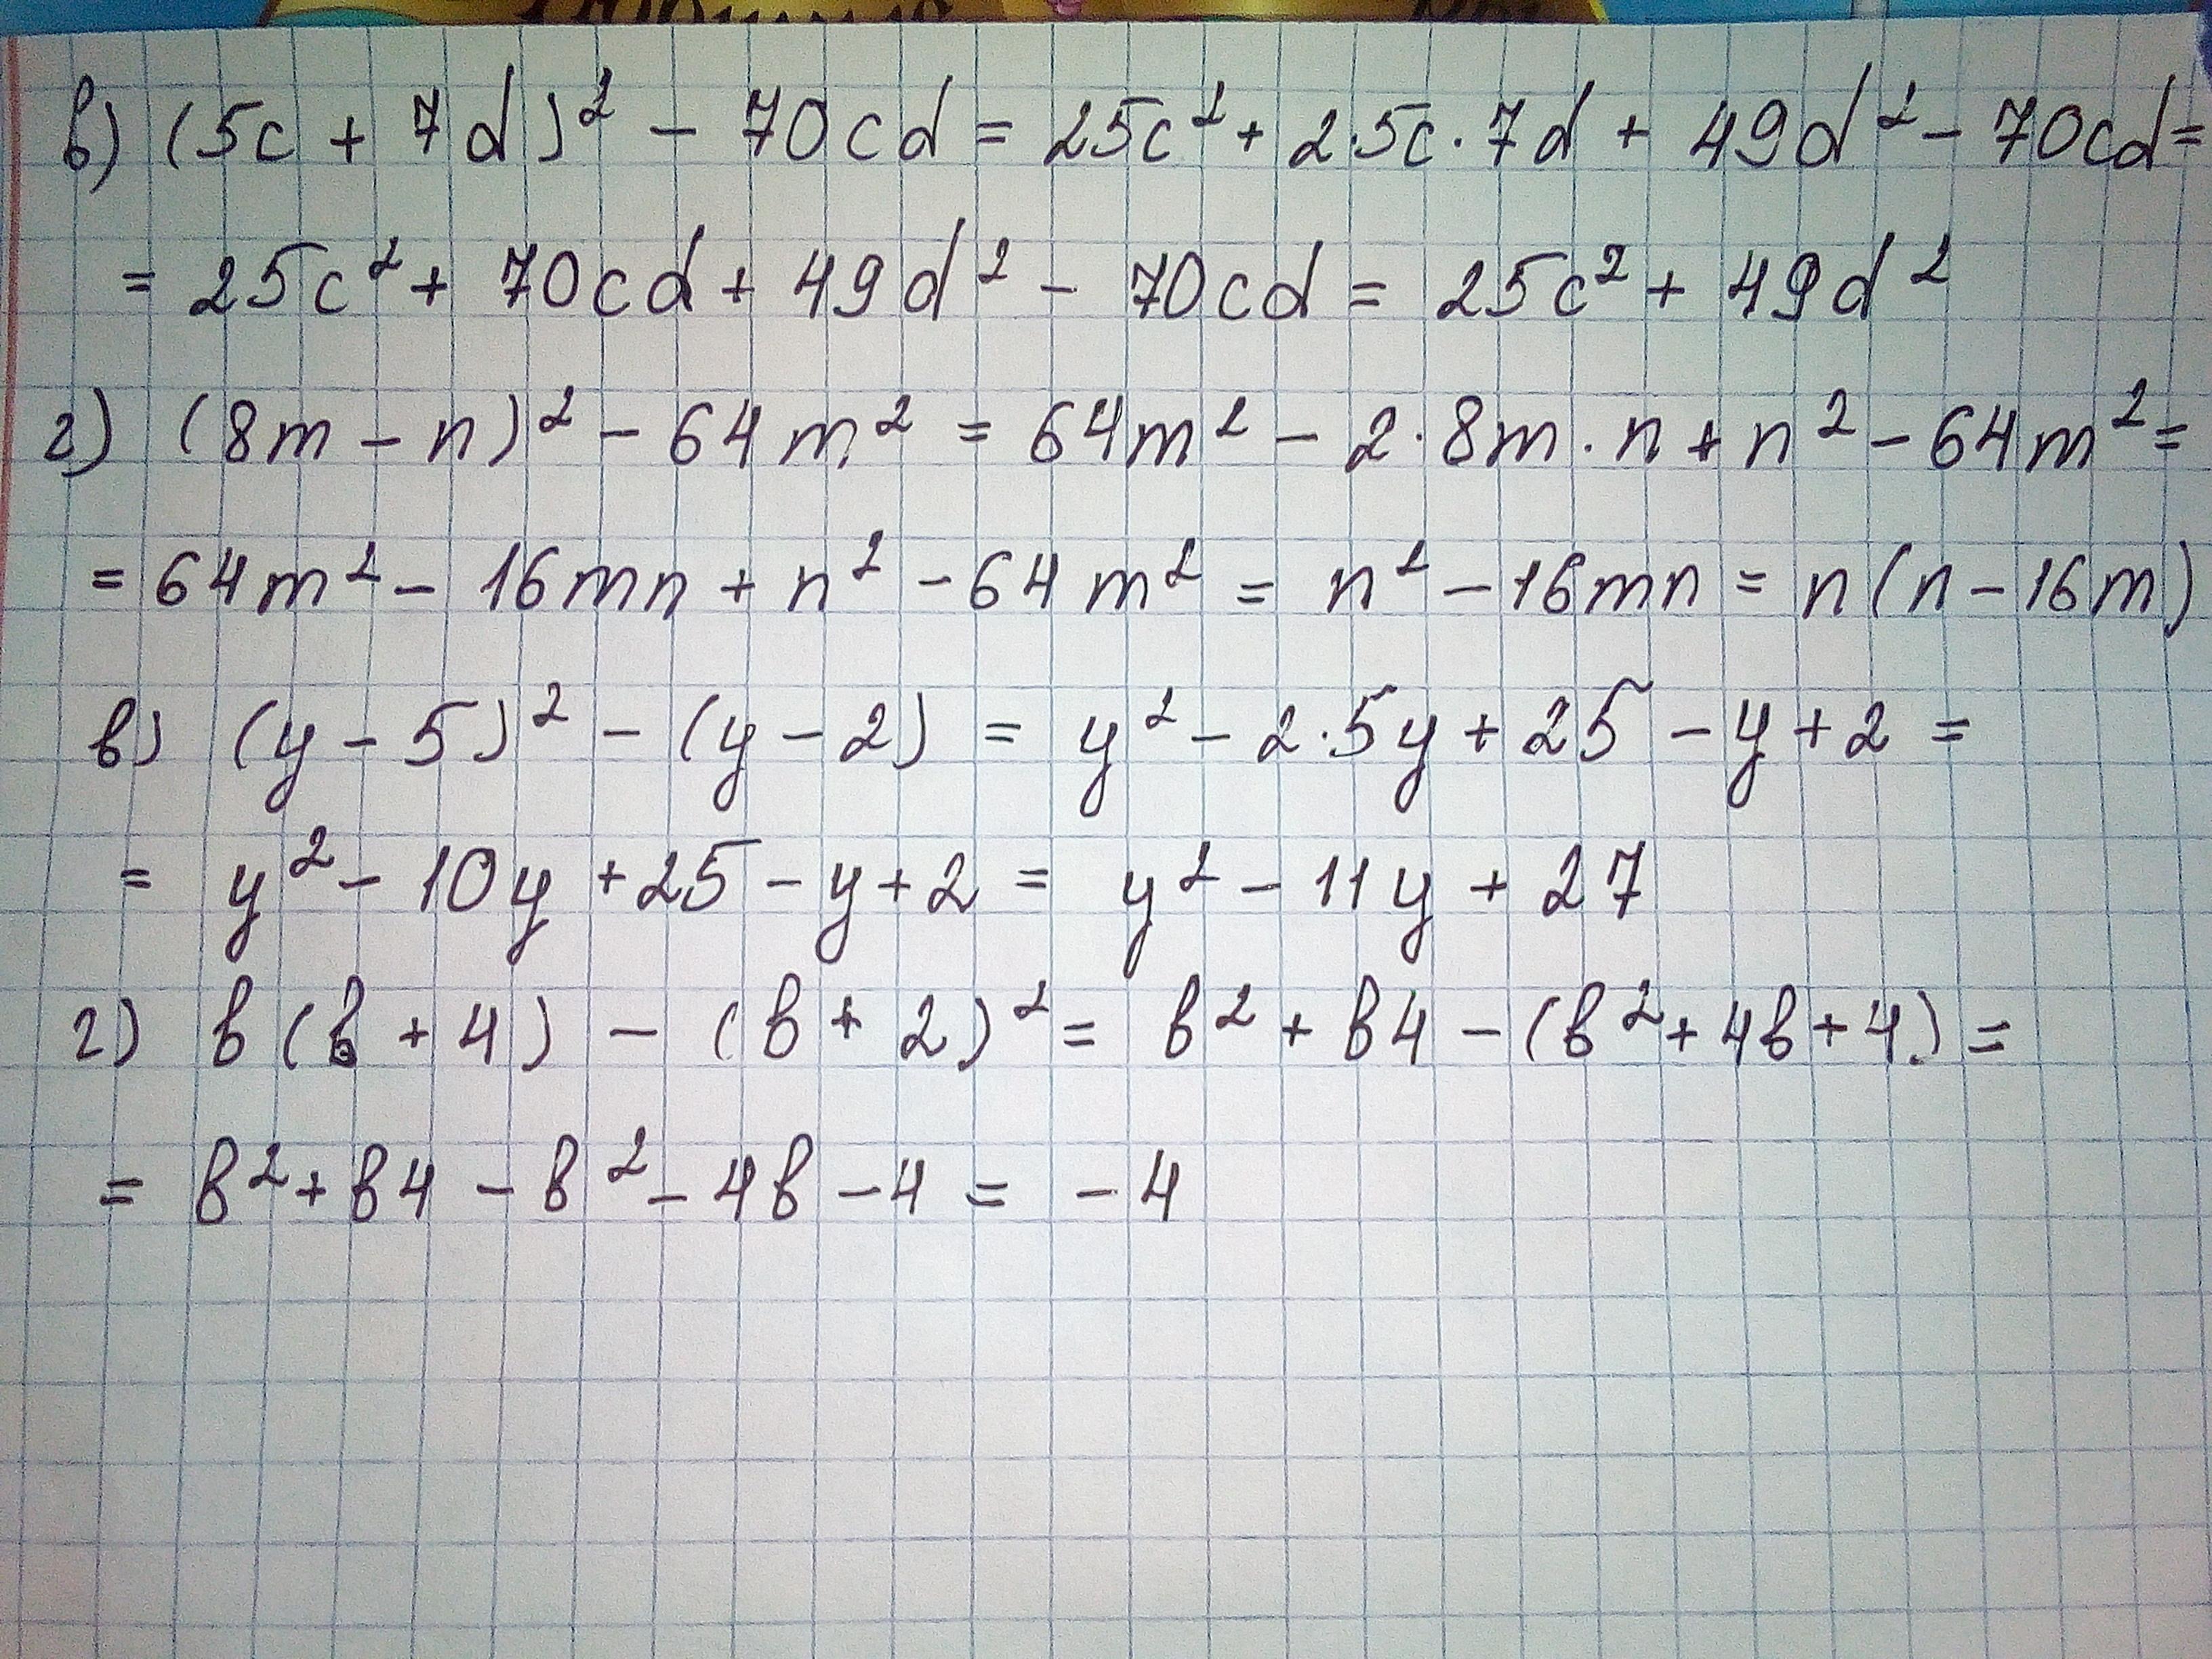 в) (5c + 7d)² - 70cd = 25c² + 2·5c·7d + 49d² - 70cd =
= 25c² + 70cd + 49d² - 70cd = 25c² + 49d²
г) (8m - n)² - 64m² = 64m² - 2·8m·n + n² - 64m² =
= 64m² - 16mn + n² - 64m² = n² - 16mn = n(n - 16m)
в) (y - 5)² - (y - 2) = y² - 2·5y + 25 - y + 2 =
= y² - 10y + 25 - y + 2 = y² - 11y + 27
г) b(b + 4) - (b + 2)² = b² + b4 - (b² + 4b + 4) =
= b² + b4 - b² - 4b - 4 = -4